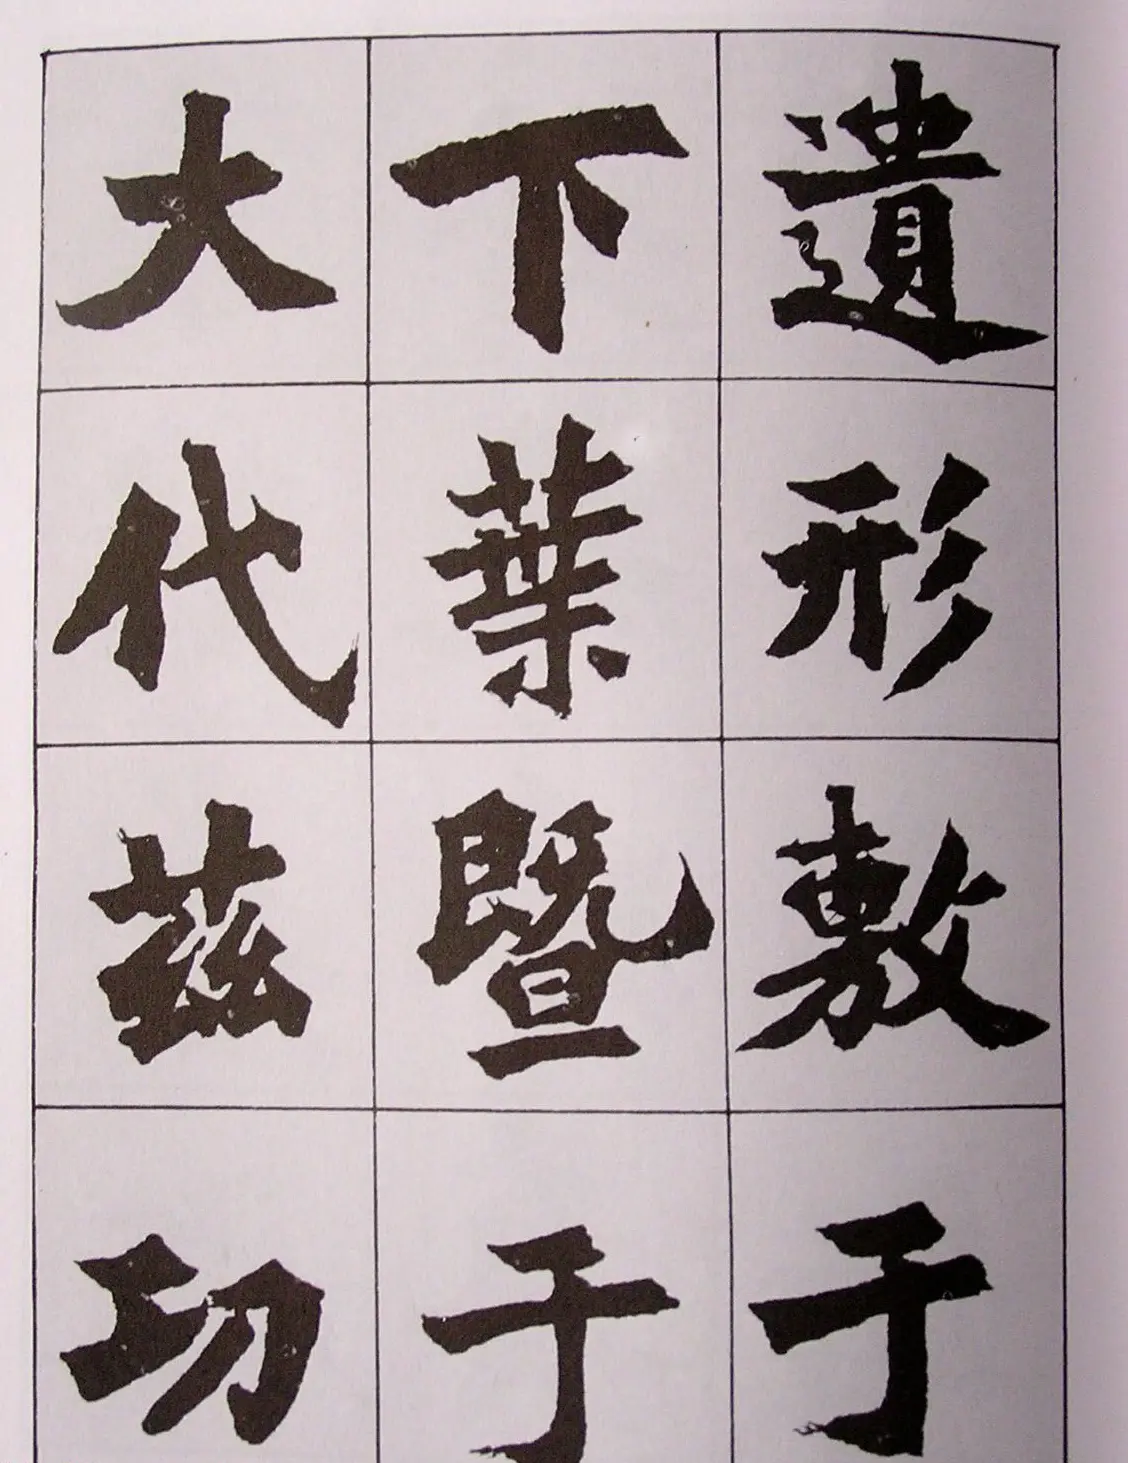 遺形敷于
下葉暨于
大代茲功